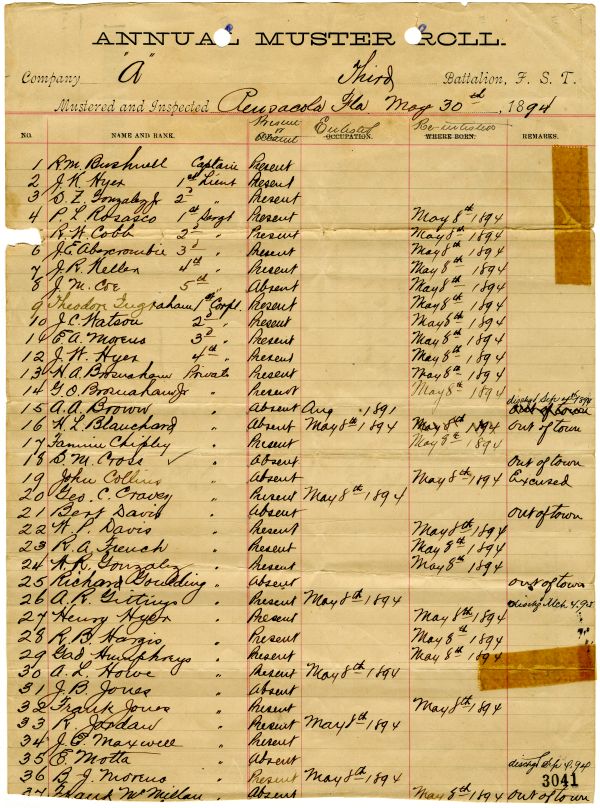 ANNUAL MUSTER ROLL.
Company "A" Third Battalion, F. S. T.
Mustered and Inspected Pensacola Fla May 30th, 1894
Present or Absent Enlisted Re-enlisted
NO. NAME AND RANK. OCCUPATION. WHERE BORN. REMARKS.
1 R.M. Bushnell Captain Present
2 J. K. Hyer 1st Lieut Present
3 D. Z. Gonzalez Jr 2d " Present
4 P. L. Rosasco 1st Sergt Present May 8th 1894
R. H. Cobb 2d " Present May 8th 1894
6 J. E. Abercrombie 3d " Present May 8th 1894
7 J. R. Keller 4th " Present May 8th 1894
8 J. M. Coe 5th " Absent May 8th 1894
9 Theodore Ingraham 1st Corpl. Present May 8th 1894
10 J. C. Watson 2d " Present May 8th 1894
11 E. A. Moreno 3d " Present May 8th 1894
12 J. W. Hyer 4th " Present May 8th 1894
13 H. A. Brosnaham Private Present May 8th 1894
14 G. O. Brosnaham Jr " Present May 8th 1894
15 A. A. Brown " Absent Aug 1891 dischgd Sep 1894
16 H. L. Blanchard " Absent May 8th 1894 May 8th 1894 Out of town
17 Fannin Chipley " Present May 8th 1894
18 D. M. Cross ✓ " Absent Out of town
19 John Collins " Absent May 8th 1894 Excused
20 Geo. C. Cravey " Present May 8th 1894
21 Bert Davis " Absent Out of town
22 H. P. Davis " Present May 8th 1894
23 R. A. French " Present May 8th 1894
24 H. R. Gonzalez " Present May 8th 1894
25 Richard Goulding " Absent Out of town
26 A. R. Gittings " Present May 8th 1894 dischg Mch 4.95
27 Henry Hyer " Present May 8th 1894
28 R. B. Hargis " Present May 8th 1894
29 Gad Humphreys " Present May 8th 1894
30 A. L. Howe " Present May 8th 1894
31 J. B. Jones " Absent
32 Frank Jones " Present May 8th 1894
33 R. Jordan " Present May 8th 1894
34 J. E. Maxwell " Present
35 E. Motta " Absent dischg Sep 4.94
36 B. J. Moreno " Present May 8th 1894 3041
37 Frank McMillan " Absent May 8th 1894 Out of town